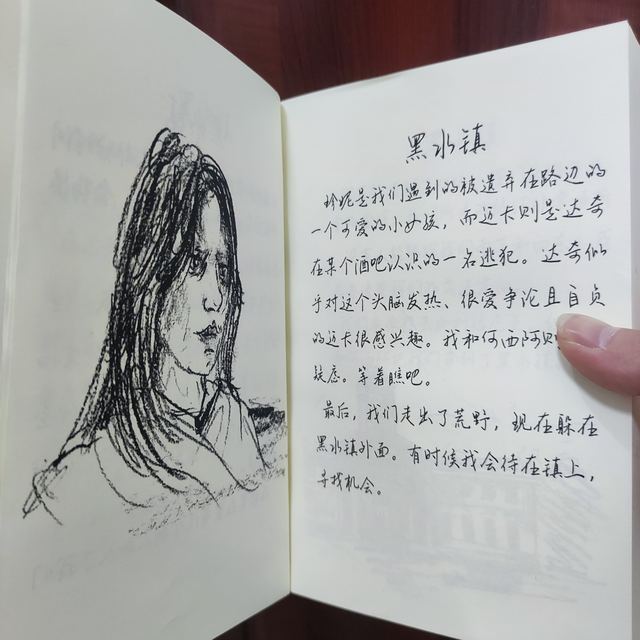 黑水镇
珍妮是我们遇到的被遗弃在路边的
一个可爱的小女孩，而迈卡则是达奇
在某个酒吧认识的一名逃犯。达奇似
乎对这个头脑发热、很爱争论且自负
的迈卡很感兴趣。我和何西阿则
疑虑。等着瞧吧。
最后，我们走出了荒野，现在躲在
黑水镇外面。有时候我会待在镇上，
寻找机会。